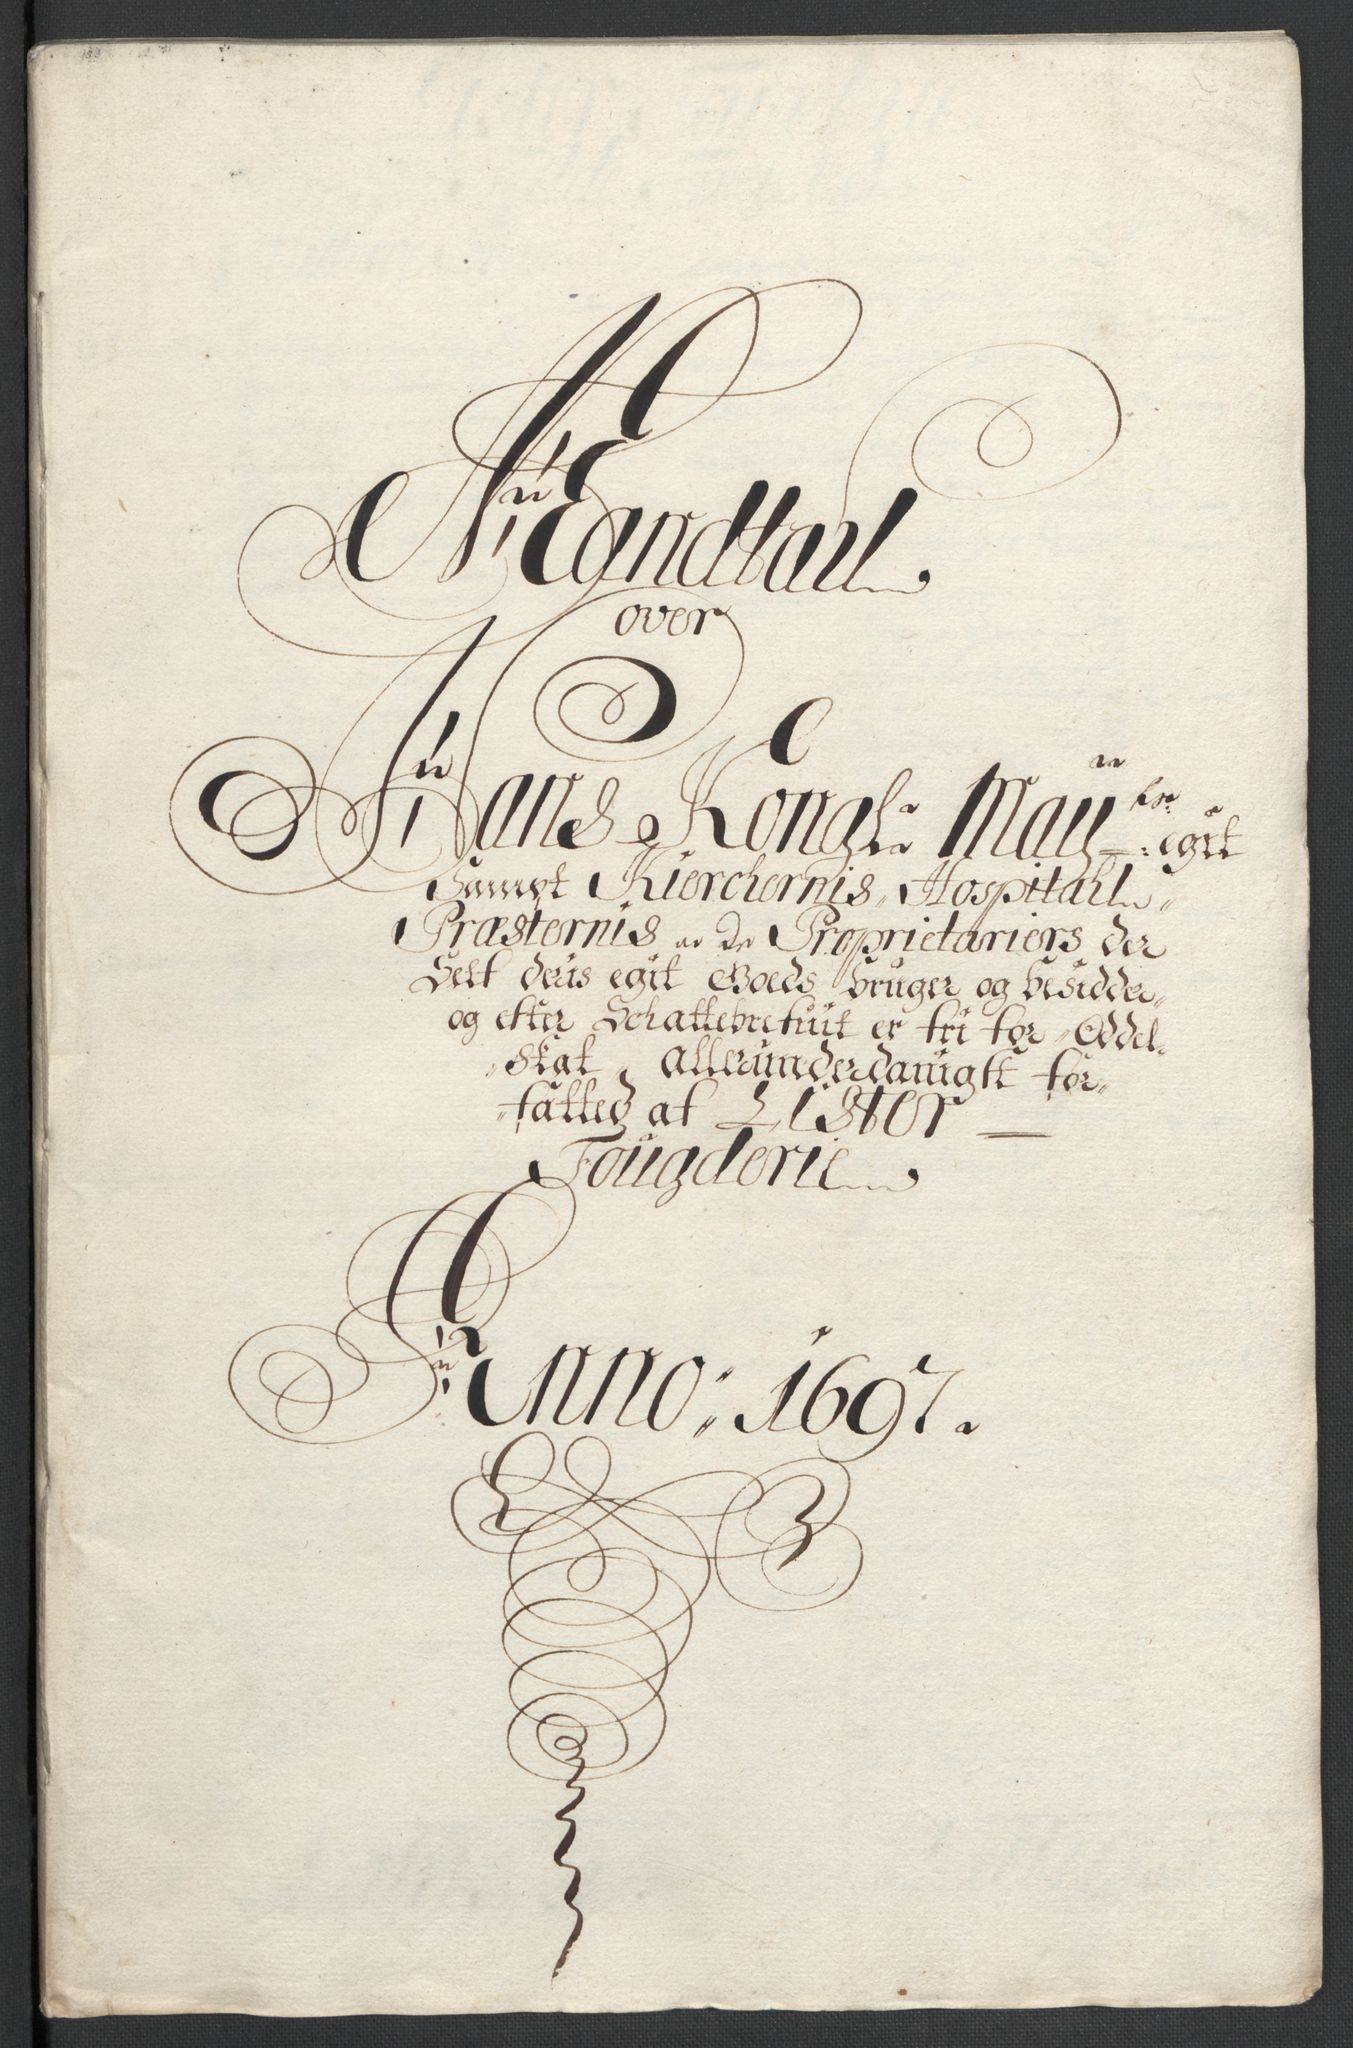 MEandtall
over
Hans Kongl: May:ts egit
Sampt Kierchernis, Hospitahl,
Præsternis, De Proprietariers der
Self deris egit Goeds bruger og besidder,
og efter Schattebrefuit er fri for Oddel-
Skat, allerunderdanigst for-
fatted af Lister
Fougderie
Anno: 1697.